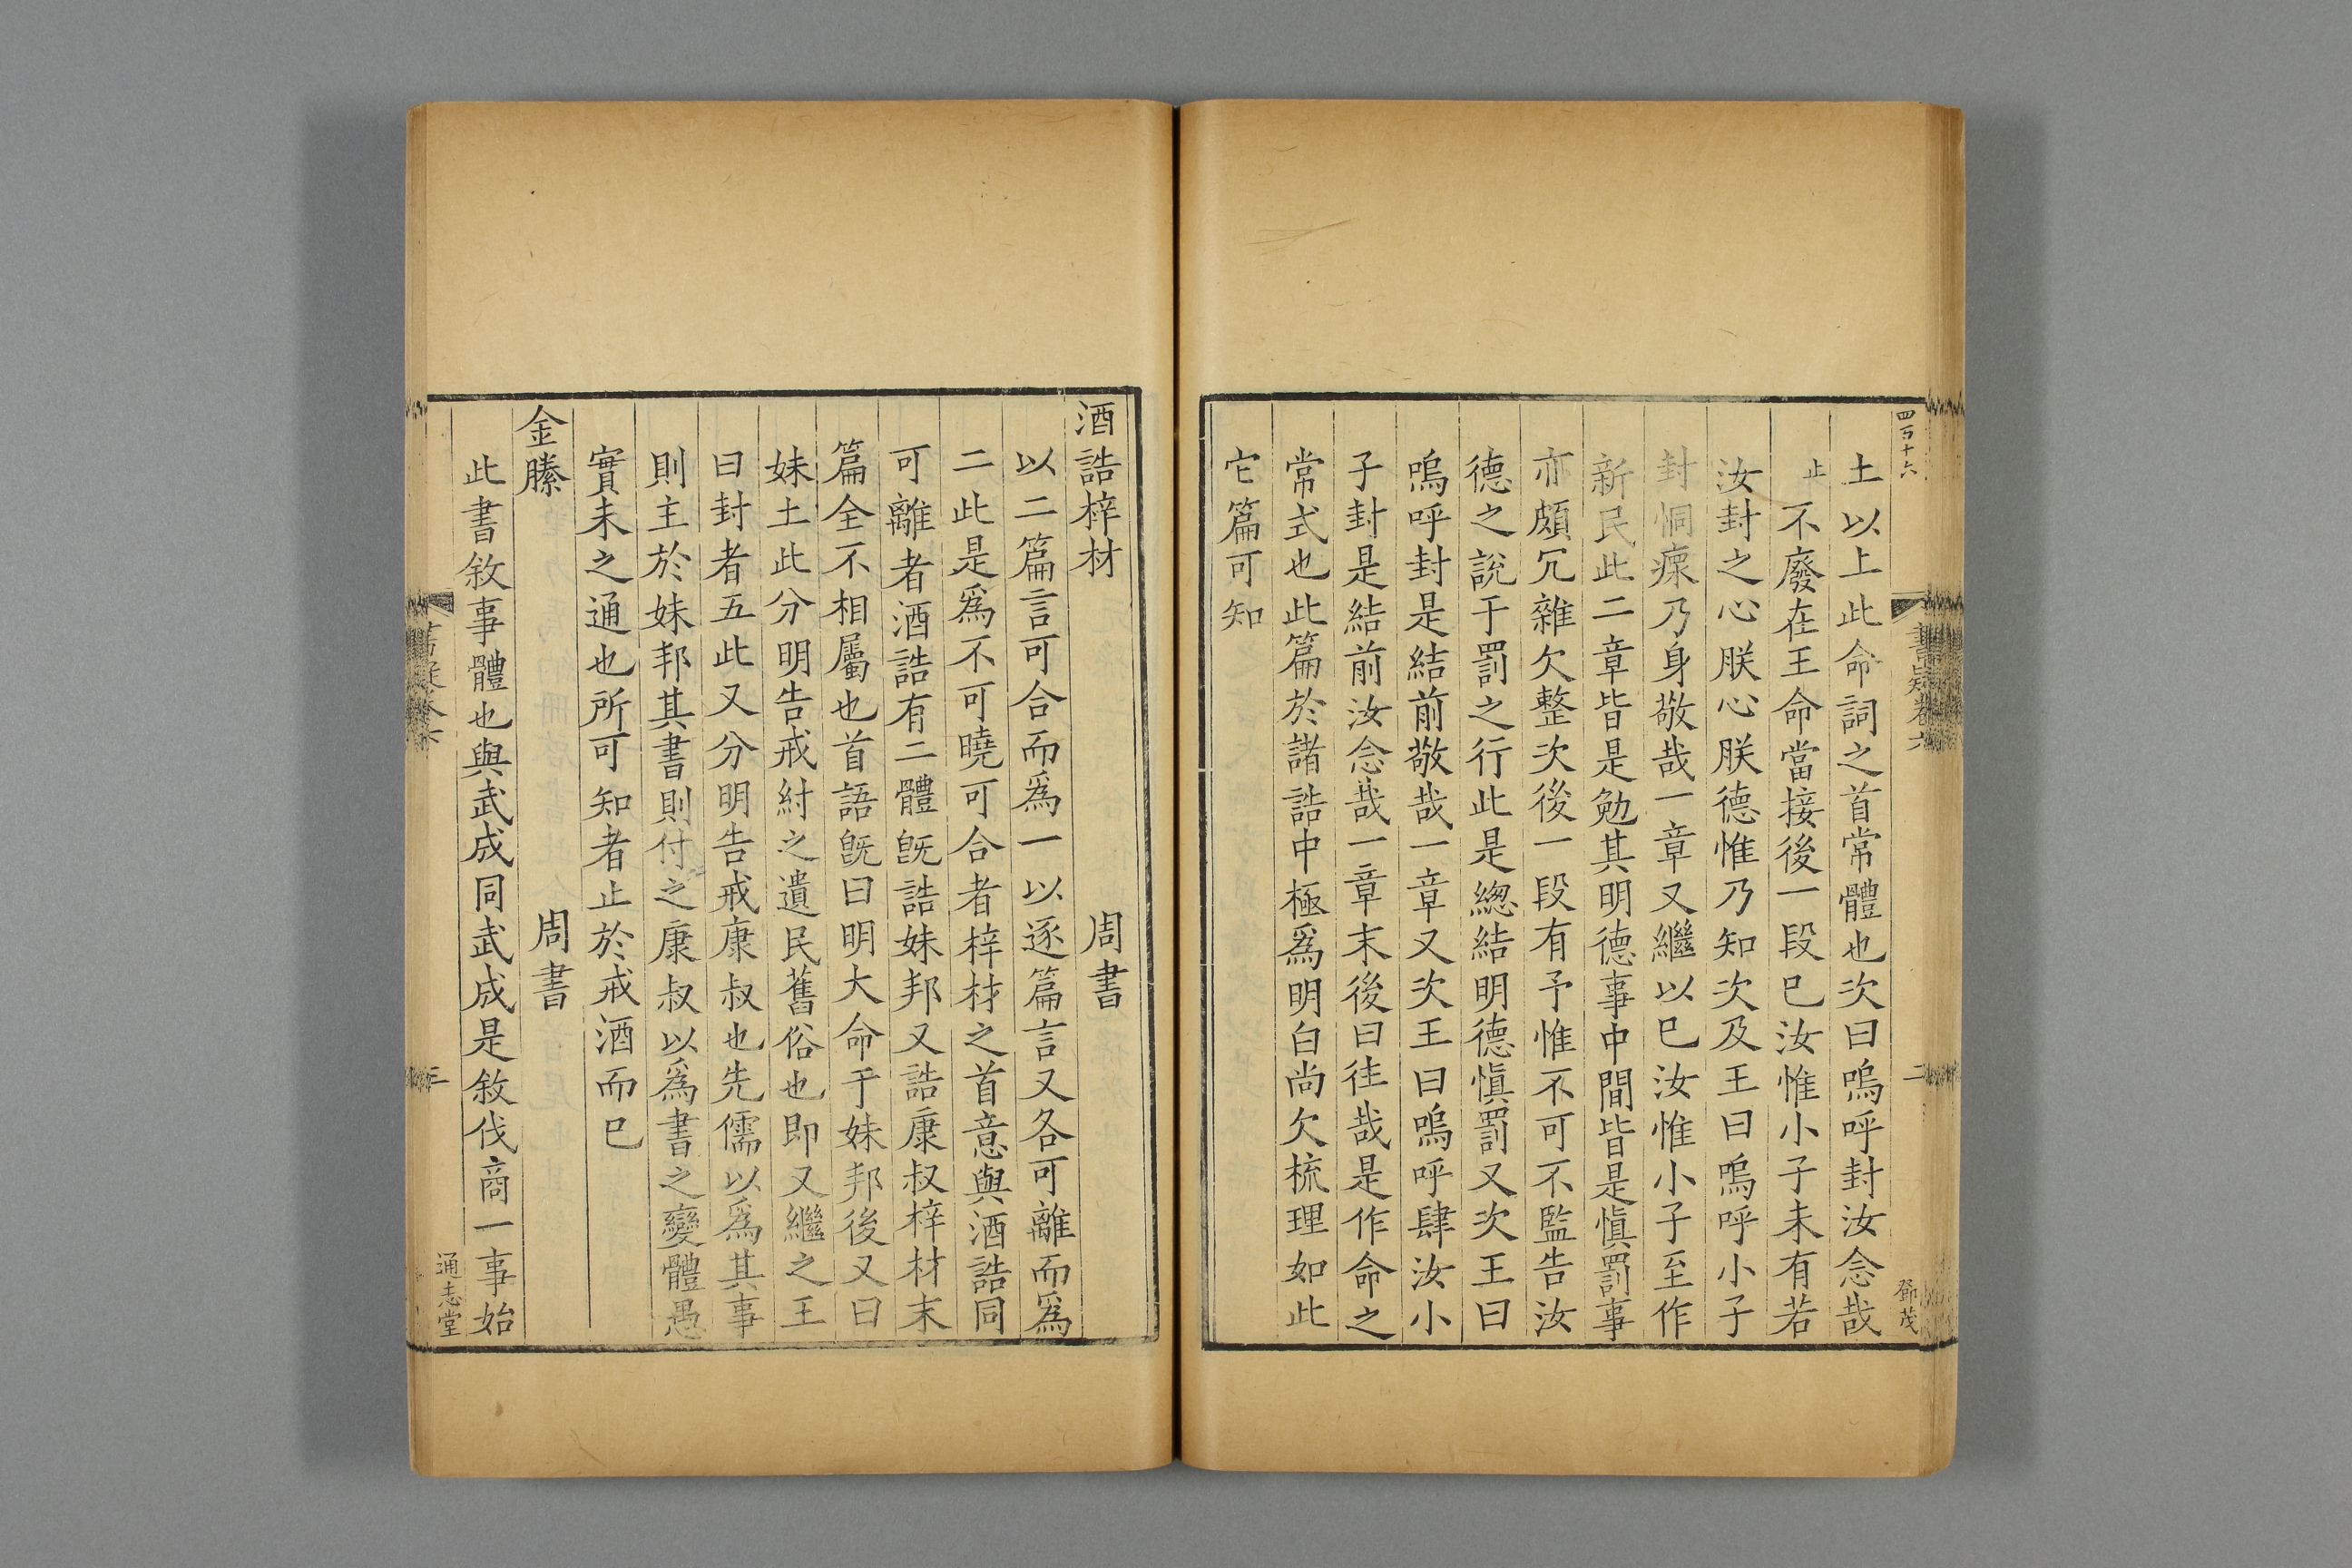 四百十六
書疑卷六
二
鄧茂
土以上此命詞之首常體也次曰嗚呼封汝念哉
止不廢在王命當接後一段巳汝惟小子未有若
汝封之心朕心朕德惟乃知次及王曰嗚呼小子
封恫瘝乃身敬哉一章又繼以巳汝惟小子至作
新民此二章皆是勉其明德事中間皆是愼罰事
亦頗冗雜欠整次後一段有予惟不可不監告汝
德之說于罰之行此是緫結明德愼罰又次王曰
嗚呼封是結前敬哉一章又次王曰嗚呼肆汝小
子封是結前汝念哉一章末後曰往哉是作命之
常式也此篇於諸誥中極爲明白尚欠梳理如此
它篇可知
酒誥梓材 周書
以二篇言可合而爲一以逐篇言又各可離而爲
二此是爲不可曉可合者梓材之首意與酒誥同
可離者酒誥有二體旣誥妹邦又誥康叔梓材末
篇全不相屬也首語旣曰明大命于妹邦後又曰
妹土此分明告戒紂之遺民舊俗也即又繼之王
曰封者五此又分明告戒康叔也先儒以爲其事
則主於妹邦其書則付之康叔以爲書之變體愚
實未之通也所可知者止於戒酒而巳
金縢 周書
此書敘事體也與武成同武成是敘伐商一事始
三
通志堂